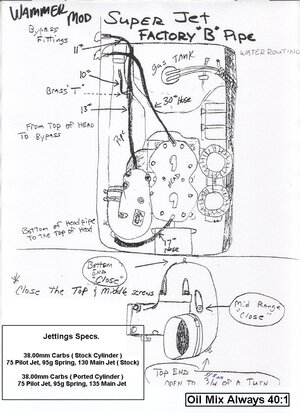 WAMMER MOD
SUPER JET
FACTORY "B" PIPE
Bypass
Fittings
11"
10"
Brass 'T'
13"
gas TANK
WATER ROUTING
30" Hose
From Top of HEAD
To Bypass
Pipe
HEAD
Bottom of Headpipe
To The Top of Head
17"
Hose
Bottom
END
"Close"
* Close the Top & Middle screws
Mid Range
"Close"
TOP END
OPEN TO 3/4 of a Turn
Jettings Specs.
38.00mm Carbs ( Stock Cylinder )
75 Pilot Jet, 95g Spring, 130 Main Jet ( Stock )
38.00mm Carbs ( Ported Cylinder )
75 Pilot Jet, 95g Spring, 135 Main Jet
Oil Mix Always 40:1